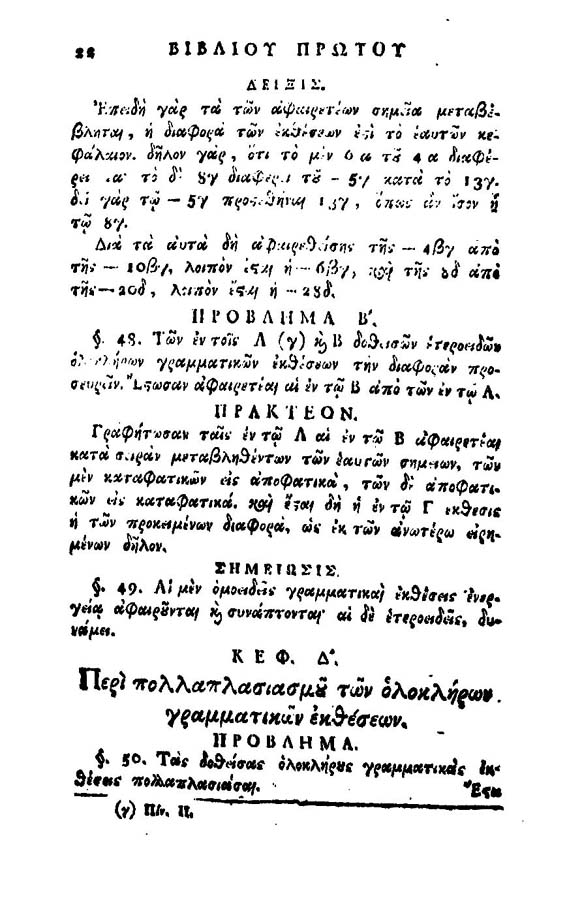 22 ΒΙΒΛΙΟΥ ΠΡΩΤΟΥ
ΔΕΙΞΙΣ.
Ἐπειδὴ γὰρ τὰ τῶν ἀφαιρετέων σημεῖα μεταβέ-
βληται, ἡ διαφορὰ τῶν ἐκθέσεων ἐςὶ τὸ ἑαυτῶν κε-
φάλαιον. δῆλον γὰρ, ὅτι τὸ μὲν 6α τȣ͂ 4α διαφέ-
ρει τὸ δὲ 8γ διαφέρει τȣ͂ — 5γ κατὰ τὸ 13γ.
δεῖ γὰρ τῷ — 5γ 13γ, ὅπως ἂν ἴσον ᾖ
τῷ 8γ.
Διὰ τὰ αυτὰ δὴ ἀφαιρεθείσης τῆς — 4βγ ἀπὸ
τῆς — 10βγ, λοιπόν ἐςαι ἡ — 6βγ, καὶ τῆς 8δ ἀπὸ
τῆς — 20δ, λοιπὸν ἔςαι ἡ — 28δ.
ΠΡΟΒΛΗΜΑ Β'.
§. 48. Τῶν ἐν τοῖς Α (γ) ϗ Β δοθεισῶν ἑτεροειδῶν
ὁλοκλήρων γραμματικῶν ἐκθέσεων τὴν διαφορὰν προ-
σευρεῖν. Ἔςωσαν ἀφαιρετέαι αἱ ἐν τῷ Β ἀπὸ τῶν ἐν τῷ Α.
ΠΡΑΚΤΕΟΝ.
Γραφήτωσαν ταῖς ἐν τῷ Α αἱ ἐν τῷ Β ἀφαιρετέαι
κατὰ σειρὰν μεταβληθέντων τῶν ἑαυτῶν σημείων, τῶν
μὲν καταφατικῶν εἰς ἀποφατικὰ, τῶν δὲ ἀποφατι-
κῶν εἰς καταφατικά. καὶ ἔςαι δὴ ἡ ἐν τῷ Γ ἐκθεσις
ἡ τῶν προκειμένων διαφορὰ, ὡς ἐκ τῶν ἀνωτέρω εἰρη-
μένων δῆλον.
ΣΗΜΕΙΩΣΙΣ.
§. 49. Αἱ μὲν ὁμοειδεῖς γραμματικαὶ ἐκθέσεις ἐνερ-
γείᾳ ἀφαιρȣ͂νται ϗ συνάπτονται· αἱ δὲ ἑτεροειδεῖς, δυ-
νάμει.
ΚΕΦ. Δ'.
Περὶ πολλαπλασιασμȣ͂ τῶν ὁλοκλήρων
γραμματικῶν ἐκθέσεων.
ΠΡΟΒΛΗΜΑ.
§. 50. Τὰς δοθείσας ὁλοκλήρȣς γραμματικὰς ἐκ-
θέσεις πολλαπλασιάσαι.
Ἔςω
(γ) Πίν. ΙΙ.